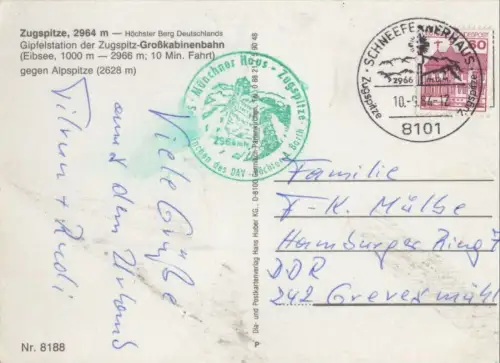 Zugspitze, 2964 m — Höchster Berg Deutschlands
Gipfelstation der Zugspitz-Großkabinenbahn
(Eibsee, 1000 m — 2966 m; 10 Min. Fahrt)
gegen Alpspitze (2628 m)
Viele Grüße
aus dem Urlaub
Tilman + Rudi
Nr. 8188
Münchner Haus - Zugspitze
2964 m
des DAV
Dia- und Postkartenverlag Hans Huber KG., D-8100 Garmisch-Partenkirchen
P
SCHNEEFERNERHAUS
Zugspitze
Zugspitze
2966
8101
60
Familie
F-K. Mülbe
Hamburger Ring 7
DDR
242 Grevesmühl